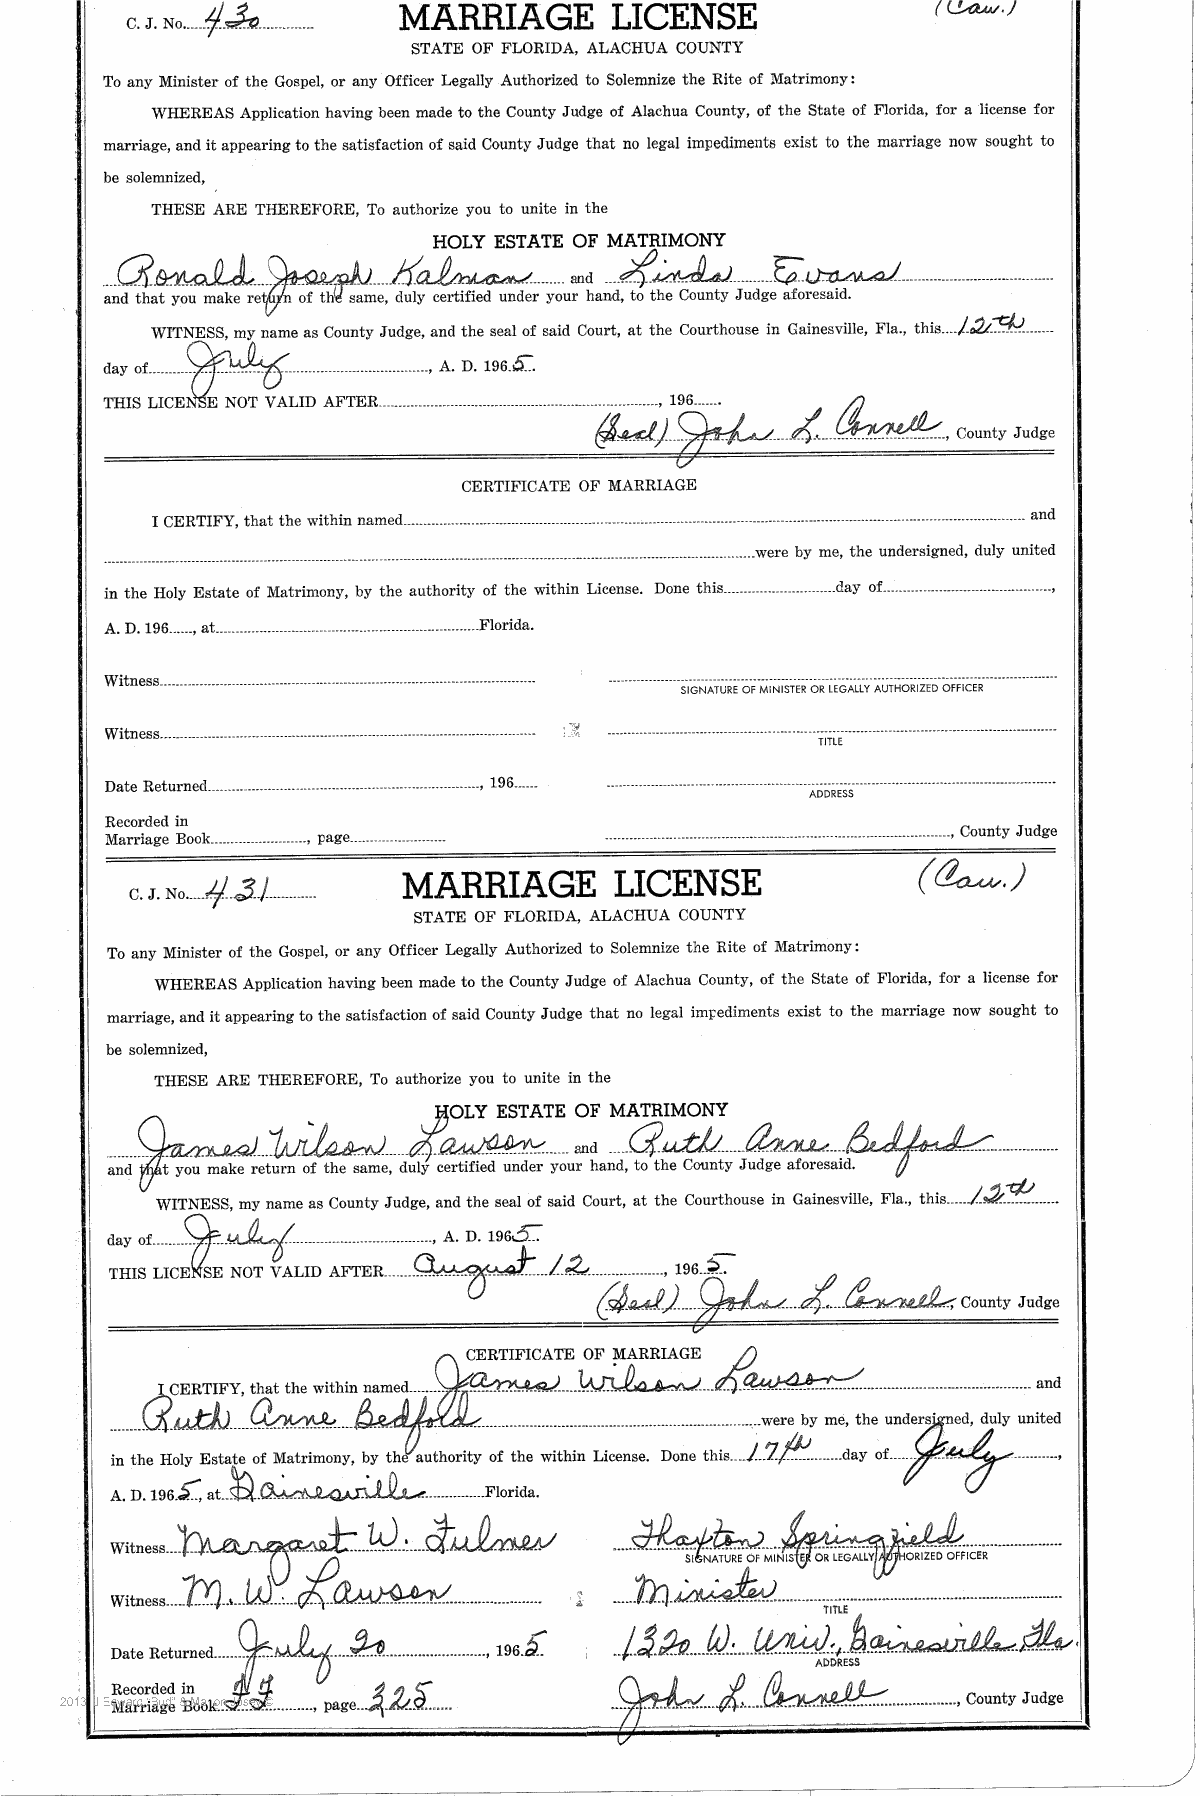 C. J. No. 430 MARRIAGE LICENSE (Cau.)
STATE OF FLORIDA, ALACHUA COUNTY
To any Minister of the Gospel, or any Officer Legally Authorized to Solemnize the Rite of Matrimony:
WHEREAS Application having been made to the County Judge of Alachua County, of the State of Florida, for a license for
marriage, and it appearing to the satisfaction of said County Judge that no legal impediments exist to the marriage now sought to
be solemnized,
THESE ARE THEREFORE, To authorize you to unite in the
HOLY ESTATE OF MATRIMONY
Ronald Joseph Kalman and Linda Evans
and that you make return of the same, duly certified under your hand, to the County Judge aforesaid.
WITNESS, my name as County Judge, and the seal of said Court, at the Courthouse in Gainesville, Fla., this 12th
day of July, A. D. 1965.
THIS LICENSE NOT VALID AFTER , 196 .
(Seal) John L. Connell, County Judge
CERTIFICATE OF MARRIAGE
I CERTIFY, that the within named and
were by me, the undersigned, duly united
in the Holy Estate of Matrimony, by the authority of the within License. Done this day of ,
A. D. 196 , at Florida.
Witness
SIGNATURE OF MINISTER OR LEGALLY AUTHORIZED OFFICER
Witness
TITLE
Date Returned , 196
ADDRESS
Recorded in
Marriage Book , page , County Judge
C. J. No. 431 MARRIAGE LICENSE (Cau.)
STATE OF FLORIDA, ALACHUA COUNTY
To any Minister of the Gospel, or any Officer Legally Authorized to Solemnize the Rite of Matrimony:
WHEREAS Application having been made to the County Judge of Alachua County, of the State of Florida, for a license for
marriage, and it appearing to the satisfaction of said County Judge that no legal impediments exist to the marriage now sought to
be solemnized,
THESE ARE THEREFORE, To authorize you to unite in the
HOLY ESTATE OF MATRIMONY
James Wilson Lawson and Ruth Anne Bedford
and that you make return of the same, duly certified under your hand, to the County Judge aforesaid.
WITNESS, my name as County Judge, and the seal of said Court, at the Courthouse in Gainesville, Fla., this 12th
day of July, A. D. 1965.
THIS LICENSE NOT VALID AFTER August 12, 1965.
(Seal) John L. Connell, County Judge
CERTIFICATE OF MARRIAGE
I CERTIFY, that the within named James Wilson Lawson and
Ruth Anne Bedfold were by me, the undersigned, duly united
in the Holy Estate of Matrimony, by the authority of the within License. Done this 17th day of July,
A. D. 1965, at Gainesville Florida.
Witness Margaret W. Fulmer Thaxton Springfield
SIGNATURE OF MINISTER OR LEGALLY AUTHORIZED OFFICER
Witness M. W. Lawson Minister
TITLE
Date Returned July 20, 1965 1320 W. Univ., Gainesville, Fla.
ADDRESS
Recorded in
Marriage Book , page 325 John L. Connell, County Judge